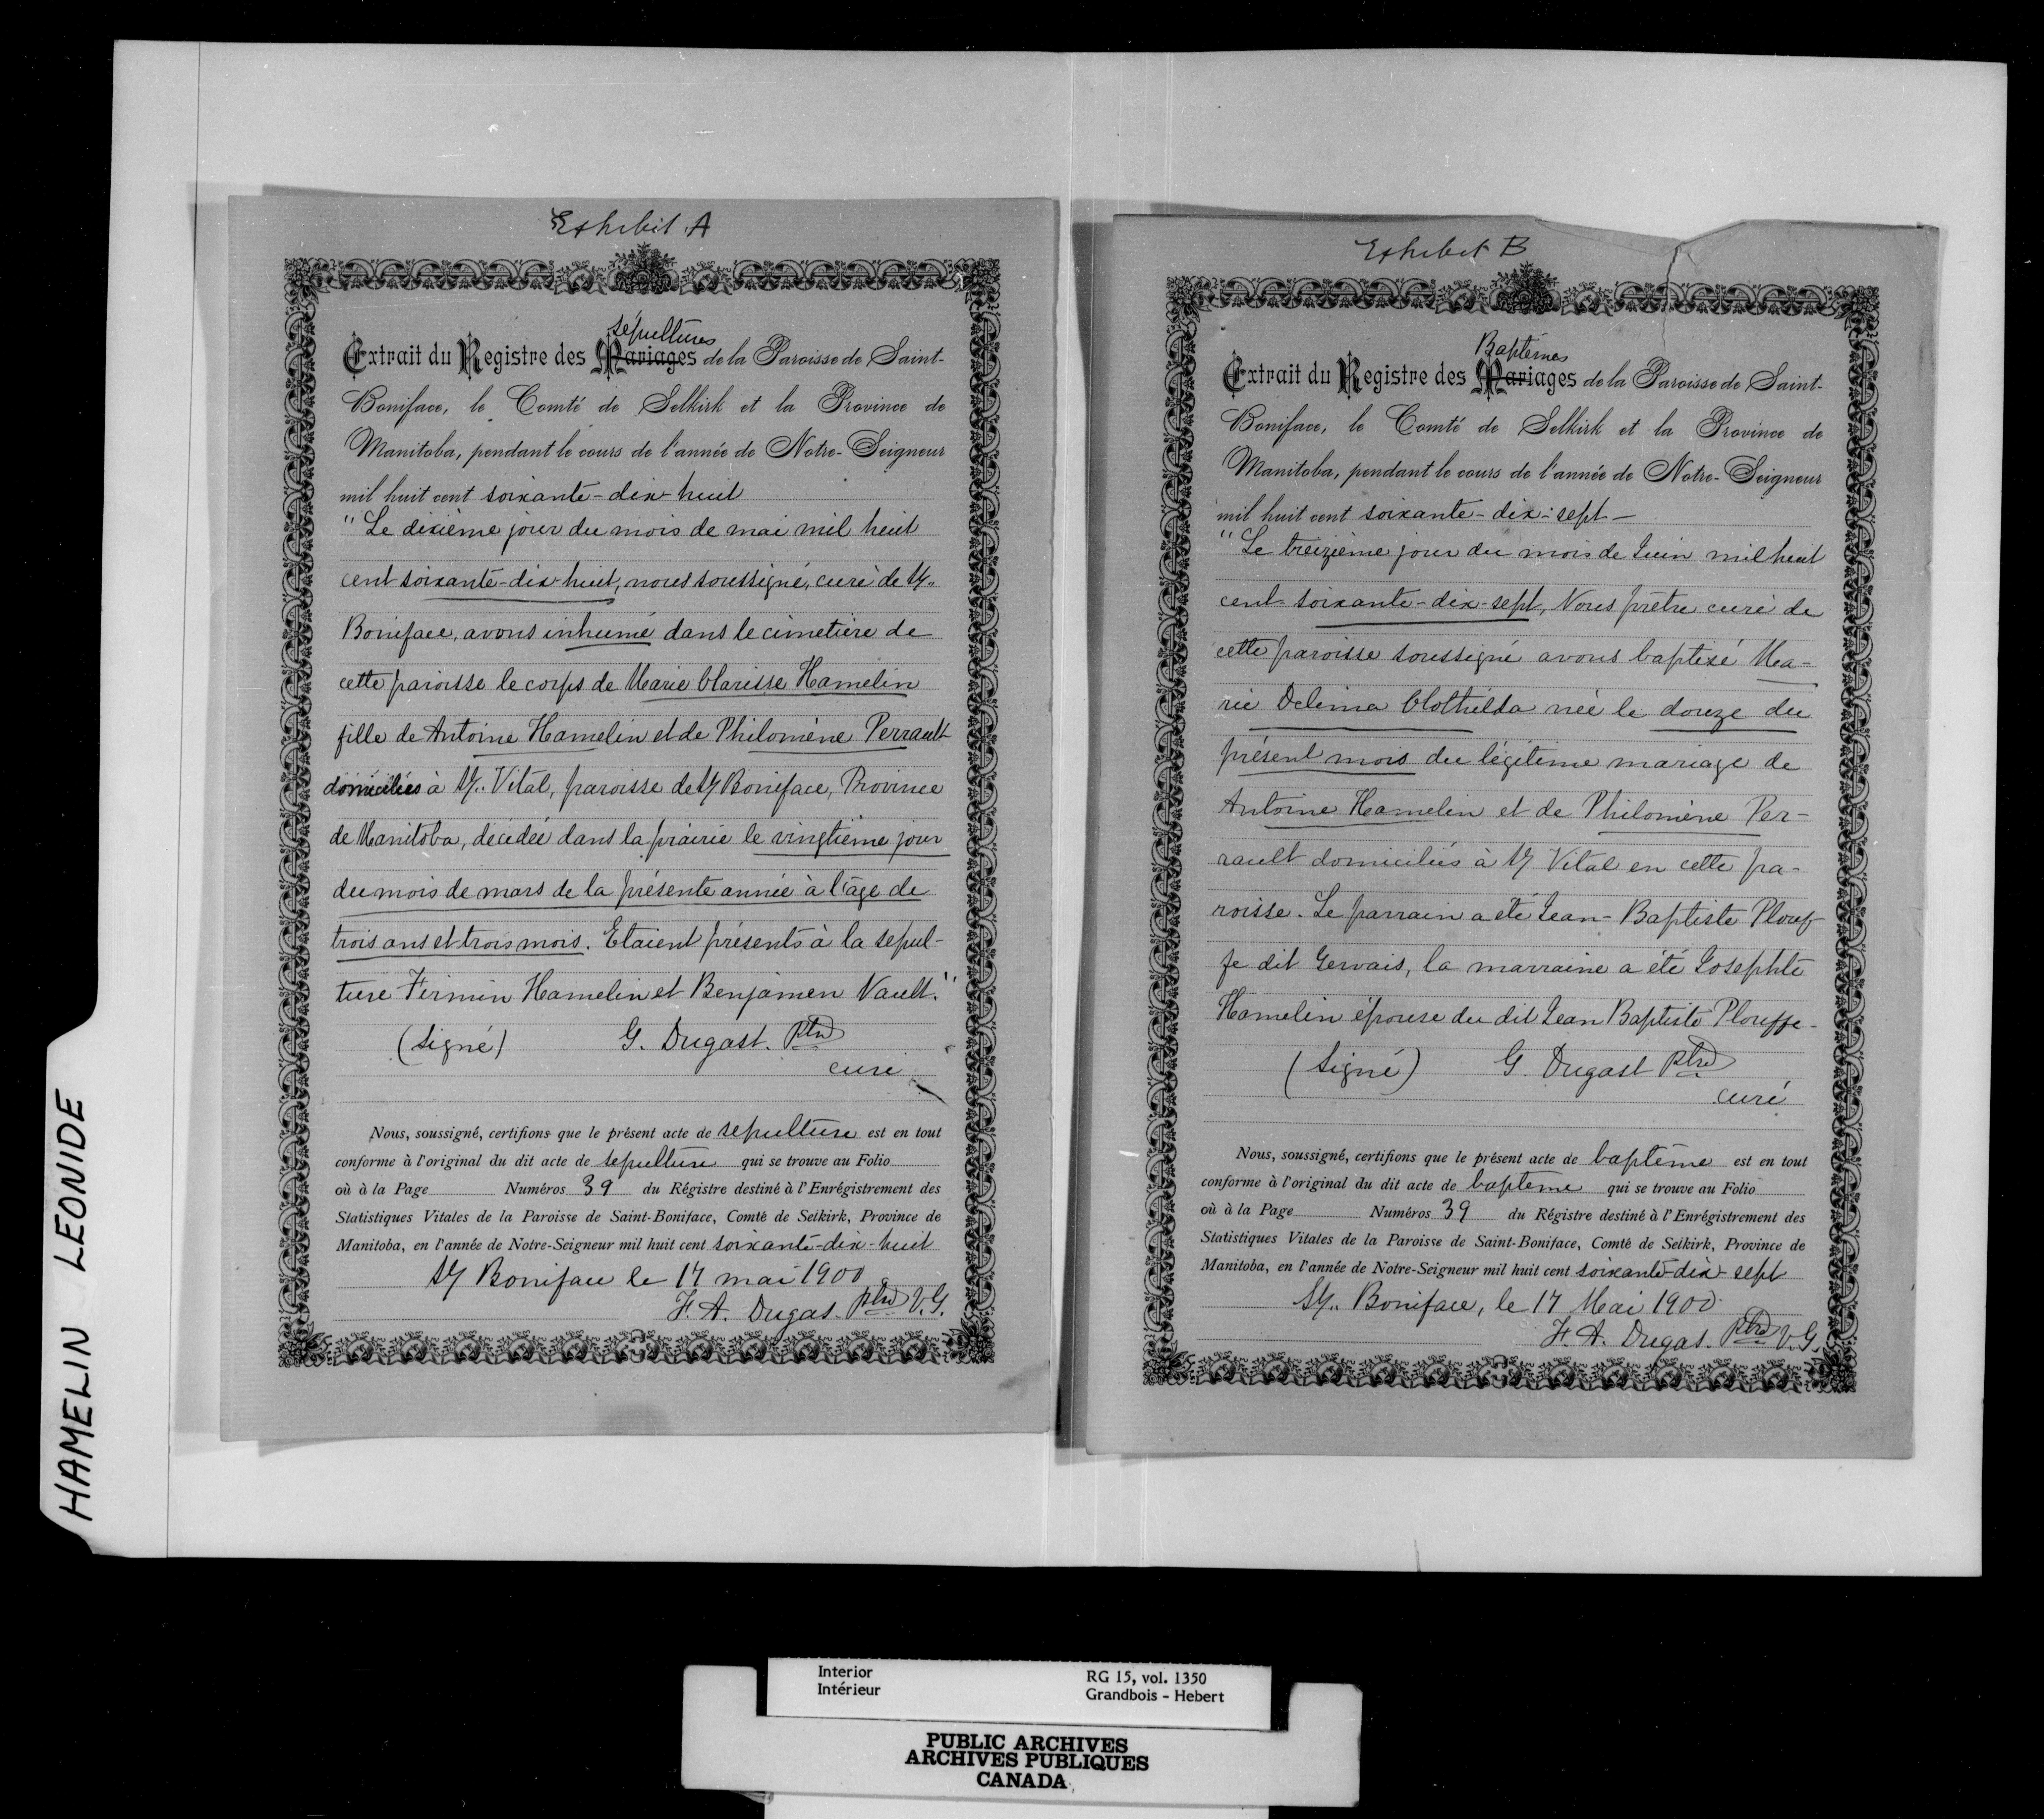 HAMELIN LEONIDE
Exhibit A
sépultures
Extrait du Registre des Mariages de la Paroisse de Saint-
Boniface, le Comté de Selkirk et la Province de
Manitoba, pendant le cours de l'année de Notre-Seigneur
mil huit cent soixante-dix-huit
"Le dixième jour du mois de mai mil huit
cent soixante-dix-huit, nous soussigné, curé de St.
Boniface, avons inhumé dans le cimetière de
cette paroisse le corps de Marie Clarisse Hamelin
fille de Antoine Hamelin et de Philomène Perrault
domiciliés à St. Vital, paroisse de St Boniface, Province
de Manitoba, décédée dans la prairie le vingtième jour
du mois de mars de la présente année à l'âge de
trois ans et trois mois. Etaient présents à la sepul-
ture Firmin Hamelin et Benjamen Nault."
(signé) G. Dugast. Ptre
curé
Nous, soussigné, certifions que le présent acte de sepulture est en tout
conforme à l'original du dit acte de sepulture qui se trouve au Folio
où à la Page Numéros 39 du Régistre destiné à l'Enrégistrement des
Statistiques Vitales de la Paroisse de Saint-Boniface, Comté de Selkirk, Province de
Manitoba, en l'année de Notre-Seigneur mil huit cent soixante-dix-huit
St Boniface le 17 mai 1900
F. A. Dugas. Ptre V.G.
Exhibit B
Baptêmes
Extrait du Registre des Mariages de la Paroisse de Saint-
Boniface, le Comté de Selkirk et la Province de
Manitoba, pendant le cours de l'année de Notre-Seigneur
mil huit cent soixante-dix-sept-
"Le treizième jour du mois de Juin mil huit
cent-soixante-dix-sept, Nous prêtre curé de
cette paroisse soussigné avons baptisé Ma-
rie Delima Clothilda née le douze du
présent mois du légitime mariage de
Antoine Hamelin et de Philomène Per-
rault domiciliés à St Vital en cette pa-
roisse. Le parrain a été Jean-Baptiste Plouf-
fe dit Gervais, la marraine a été Josephte
Hamelin épouse du dit Jean Baptiste Plouffe-
(signé) G. Dugast Ptre
curé
Nous, soussigné, certifions que le présent acte de baptême est en tout
conforme à l'original du dit acte de baptême qui se trouve au Folio
où à la Page Numéros 39 du Régistre destiné à l'Enrégistrement des
Statistiques Vitales de la Paroisse de Saint-Boniface, Comté de Selkirk, Province de
Manitoba, en l'année de Notre-Seigneur mil huit cent soixante-dix-sept
St. Boniface, le 17 Mai 1900
F. A. Dugas. Ptre V.G.
Interior
Intérieur
RG 15, vol. 1350
Grandbois - Hebert
PUBLIC ARCHIVES
ARCHIVES PUBLIQUES
CANADA